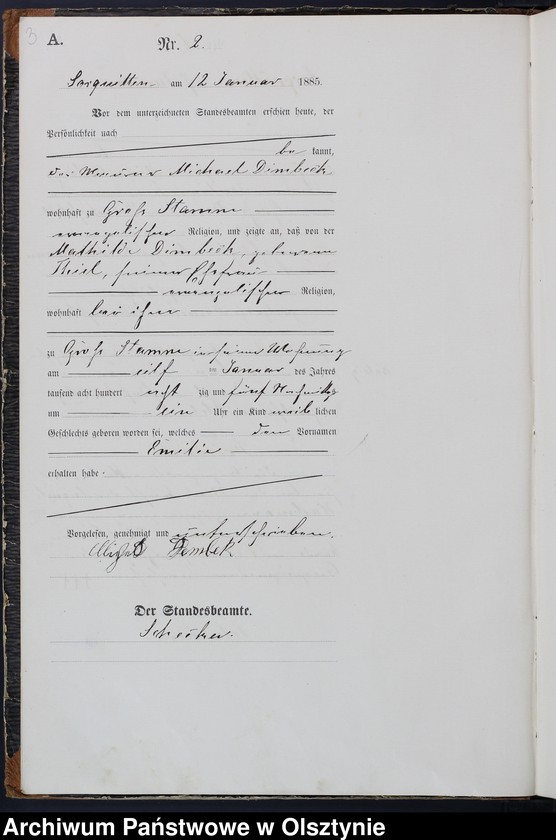 3
A.
Nr. 2.
Sorquitten am 12 Januar 1885.
Vor dem unterzeichneten Standesbeamten erschien heute, der
Persönlichkeit nach
be kannt,
der Maurer Michael Dimbeck
wohnhaft zu Groß Stamm
evangelischer Religion, und zeigte an, daß von der
Mathilde Dimbeck, geborenen
Thiel, seiner Ehefrau
evangelischer Religion,
wohnhaft bei ihm
zu Groß Stamm in seiner Wohnung
am elf ten Januar des Jahres
tausend acht hundert acht zig und fünf Nachmittags
um ein Uhr ein Kind weib lichen
Geschlechts geboren worden sei, welches den Vornamen
Emilie
erhalten habe.
Vorgelesen, genehmigt und unterschrieben.
Dembek
Der Standesbeamte.
Archiwum Państwowe w Olsztynie